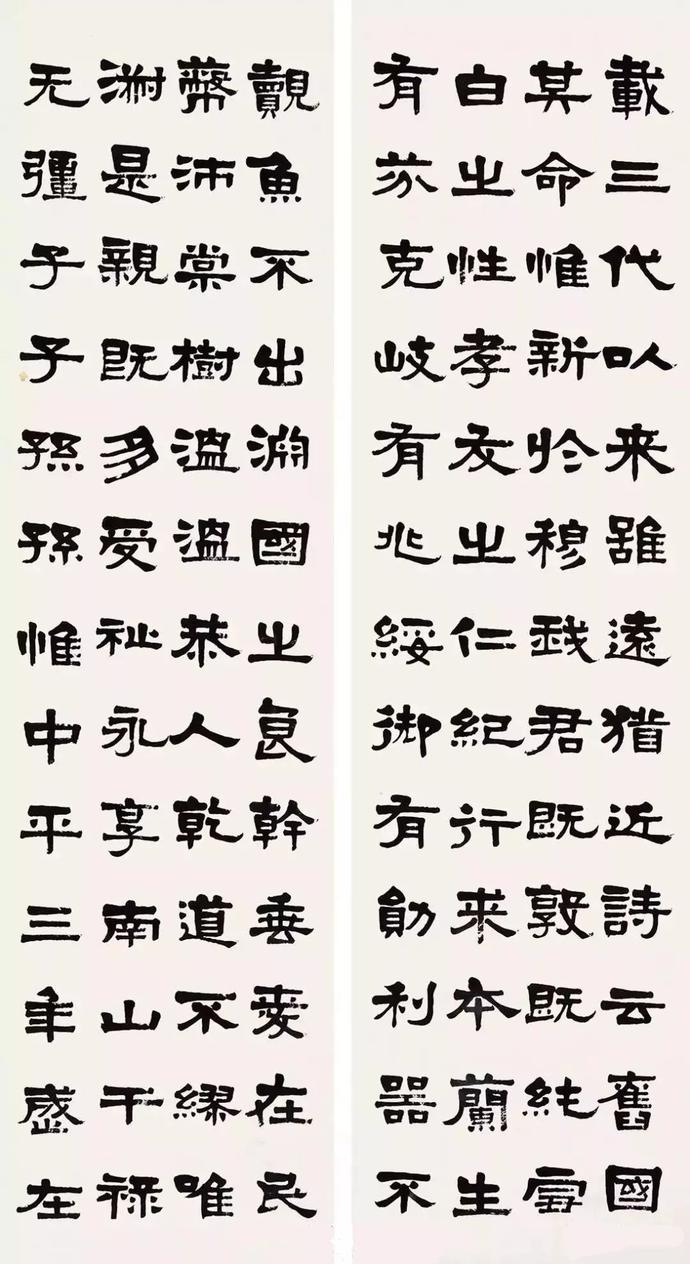 載三代以来雖遠猶近詩云舊國
其命惟新於穆我君既敦既純雪
白之性孝友之仁紀行来本蘭生
有芬克岐有兆綏御有勛利器不
覿魚不出淵國之良幹垂愛在民
蔽沛棠樹温温恭人乾道不繆唯
淑是親既多受祉永享南山干禄
无疆子子孫孫惟中平三年歲在